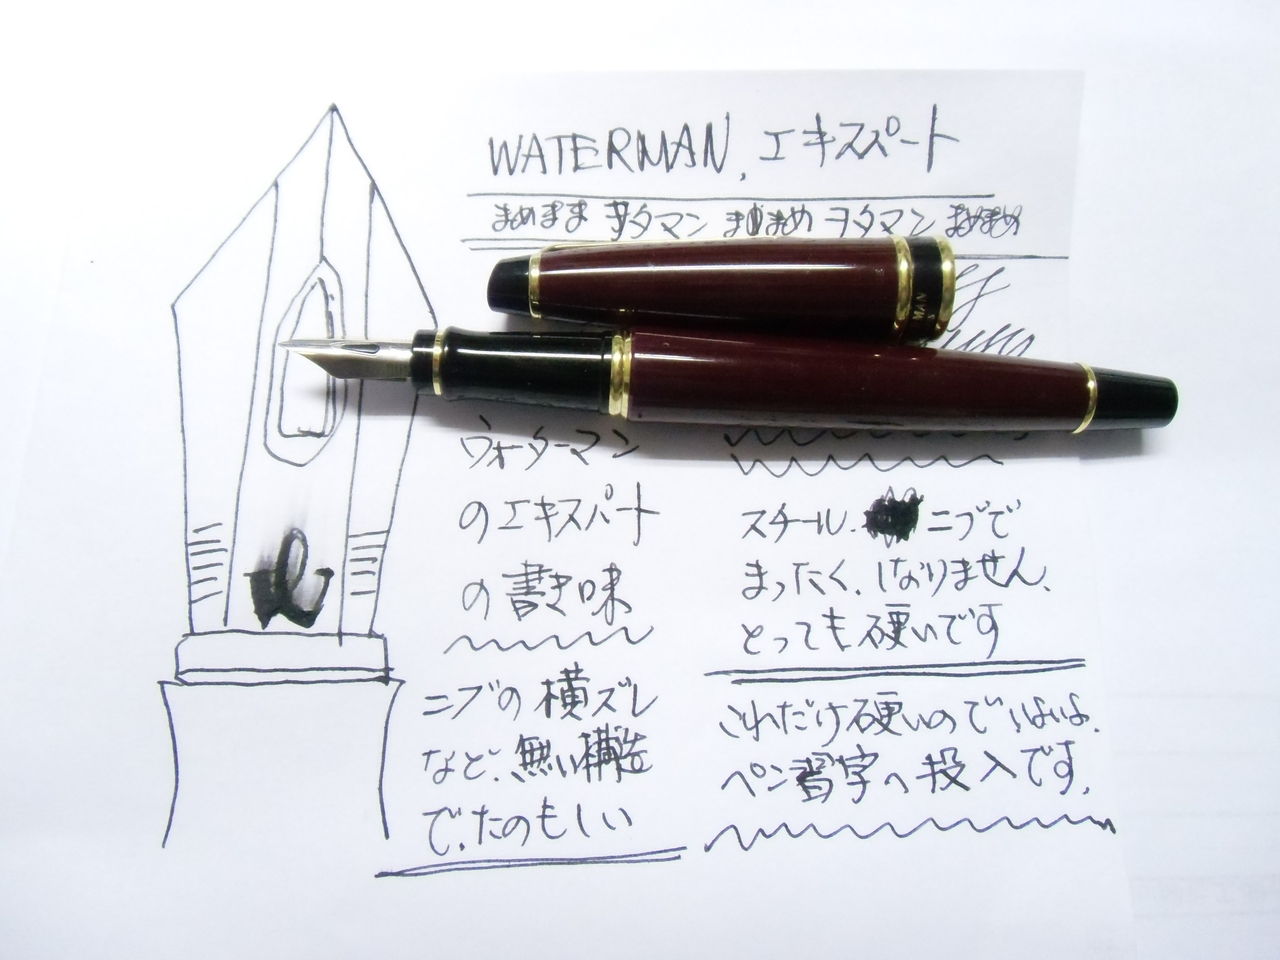 WATERMAN, エキスパート
まめまま ヲタマン まめまめ ヲタマン まめまめ
MAN
ウォーターマン
のエキスパート
の書き味
ニブの横ズレ
など、無い構造
で、たのもしい
スチール. ニブで
まったく、しなりません、
とっても硬いです
これだけ硬いので、いよいよ、
ペン習字へ投入です、